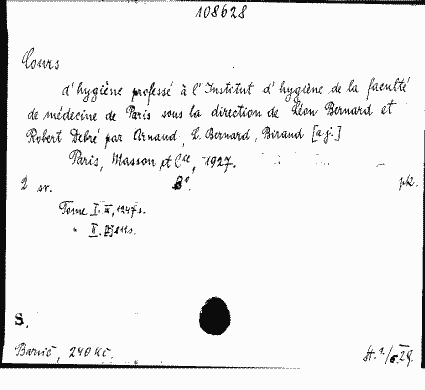 108628
Cours
d'hygiène professé à l'Institut d'hygiène de la faculté
de médecine de Paris sous la direction de Léon Bernard et
Robert Debré par Arnaud, L. Bernard, Biraud [a j.]
Paris, Masson et Cie, 1927.
2 sv. 8°. pk.
Tome I. III, 1247 s.
" II. 811 s.
S.
240 Kč.